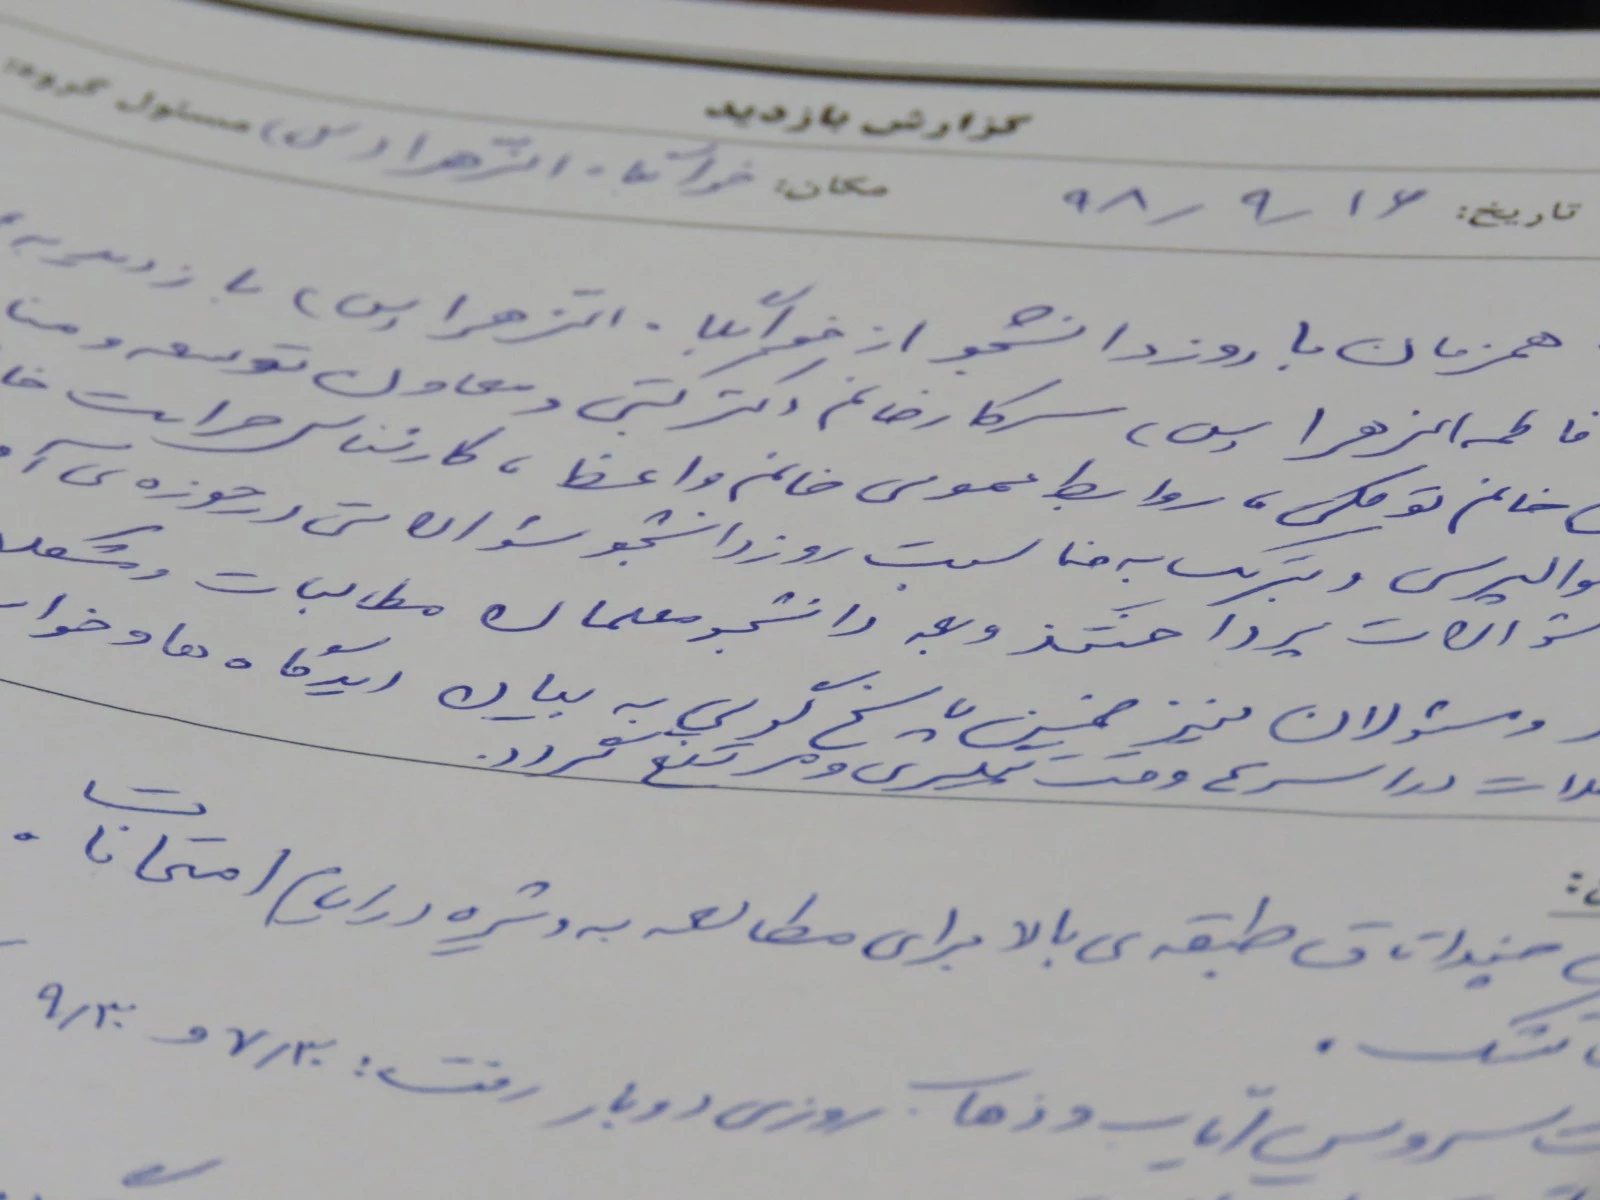 گزارش بازدید
تاریخ: ۹۸/۹/۱۶ مکان: خوابگاه الزهرا (س) مسئول گروه:
همزمان با روز دانشجو از خوابگاه الزهرا (س) بازدید به
فاطمه الزهرا (س)، سرکار خانم دکتر و معاون توسعه و منا
خانم توکلی، روابط عمومی خانم واعظ، کارشناس حراست خا
والپرسی و تبریک به مناسبت روز دانشجو سؤالاتی در حوزه‌ی
سؤالات پرداختند و بعد دانشجو معلمان مطالبات و مشکلا
و مسئولان نیز ضمن پاسخ گویی به بیان دیدگاه ها و خوا
لات در اسرع وقت پیگیری و مرتفع گردد.
چند اتاق طبقه‌ی بالا برای مطالعه به ویژه در ایام امتحانات
تشک.
سرویس ایاب و ذهاب روزی دو بار رفت: ۷/۳۰ و ۹/۳۰